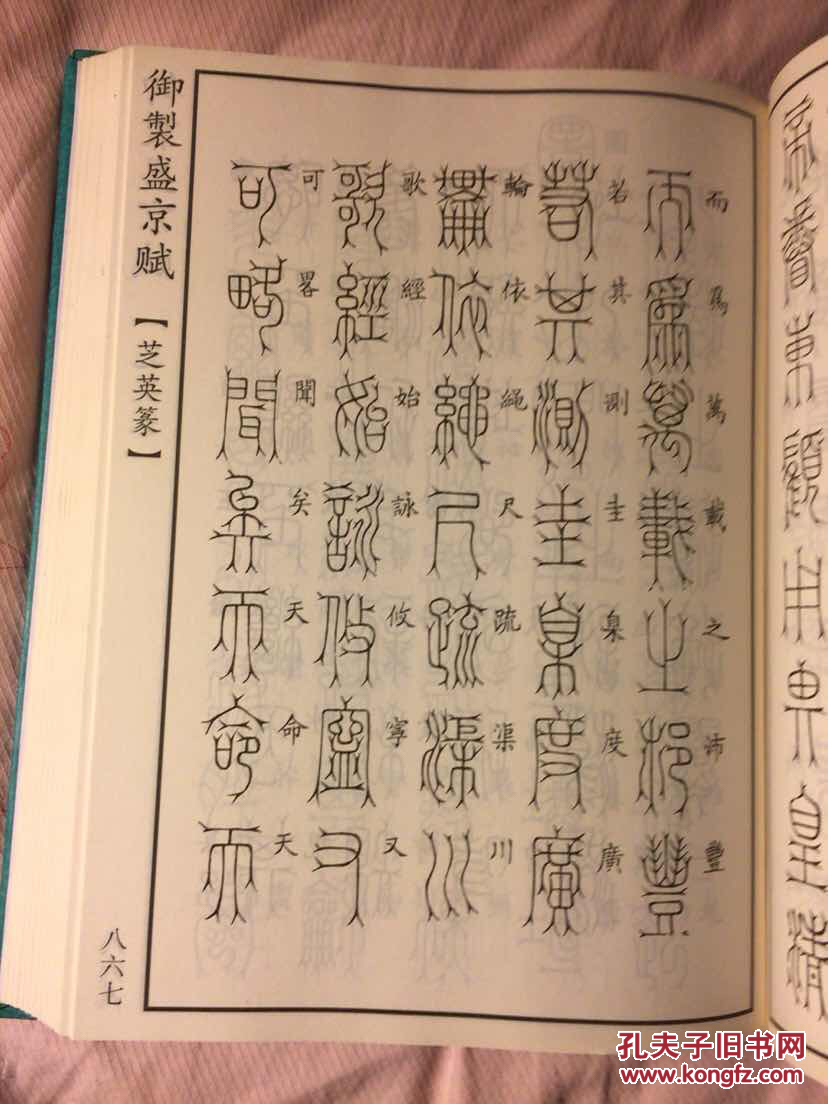 而為萬載之沛豐
若其測圭臬度廣
輪依繩尺疏渠川
歌經始詠攸寧又
可畧聞矣天命天
御製盛京赋【芝英篆】
八六七
孔夫子旧书网
www.kongfz.com